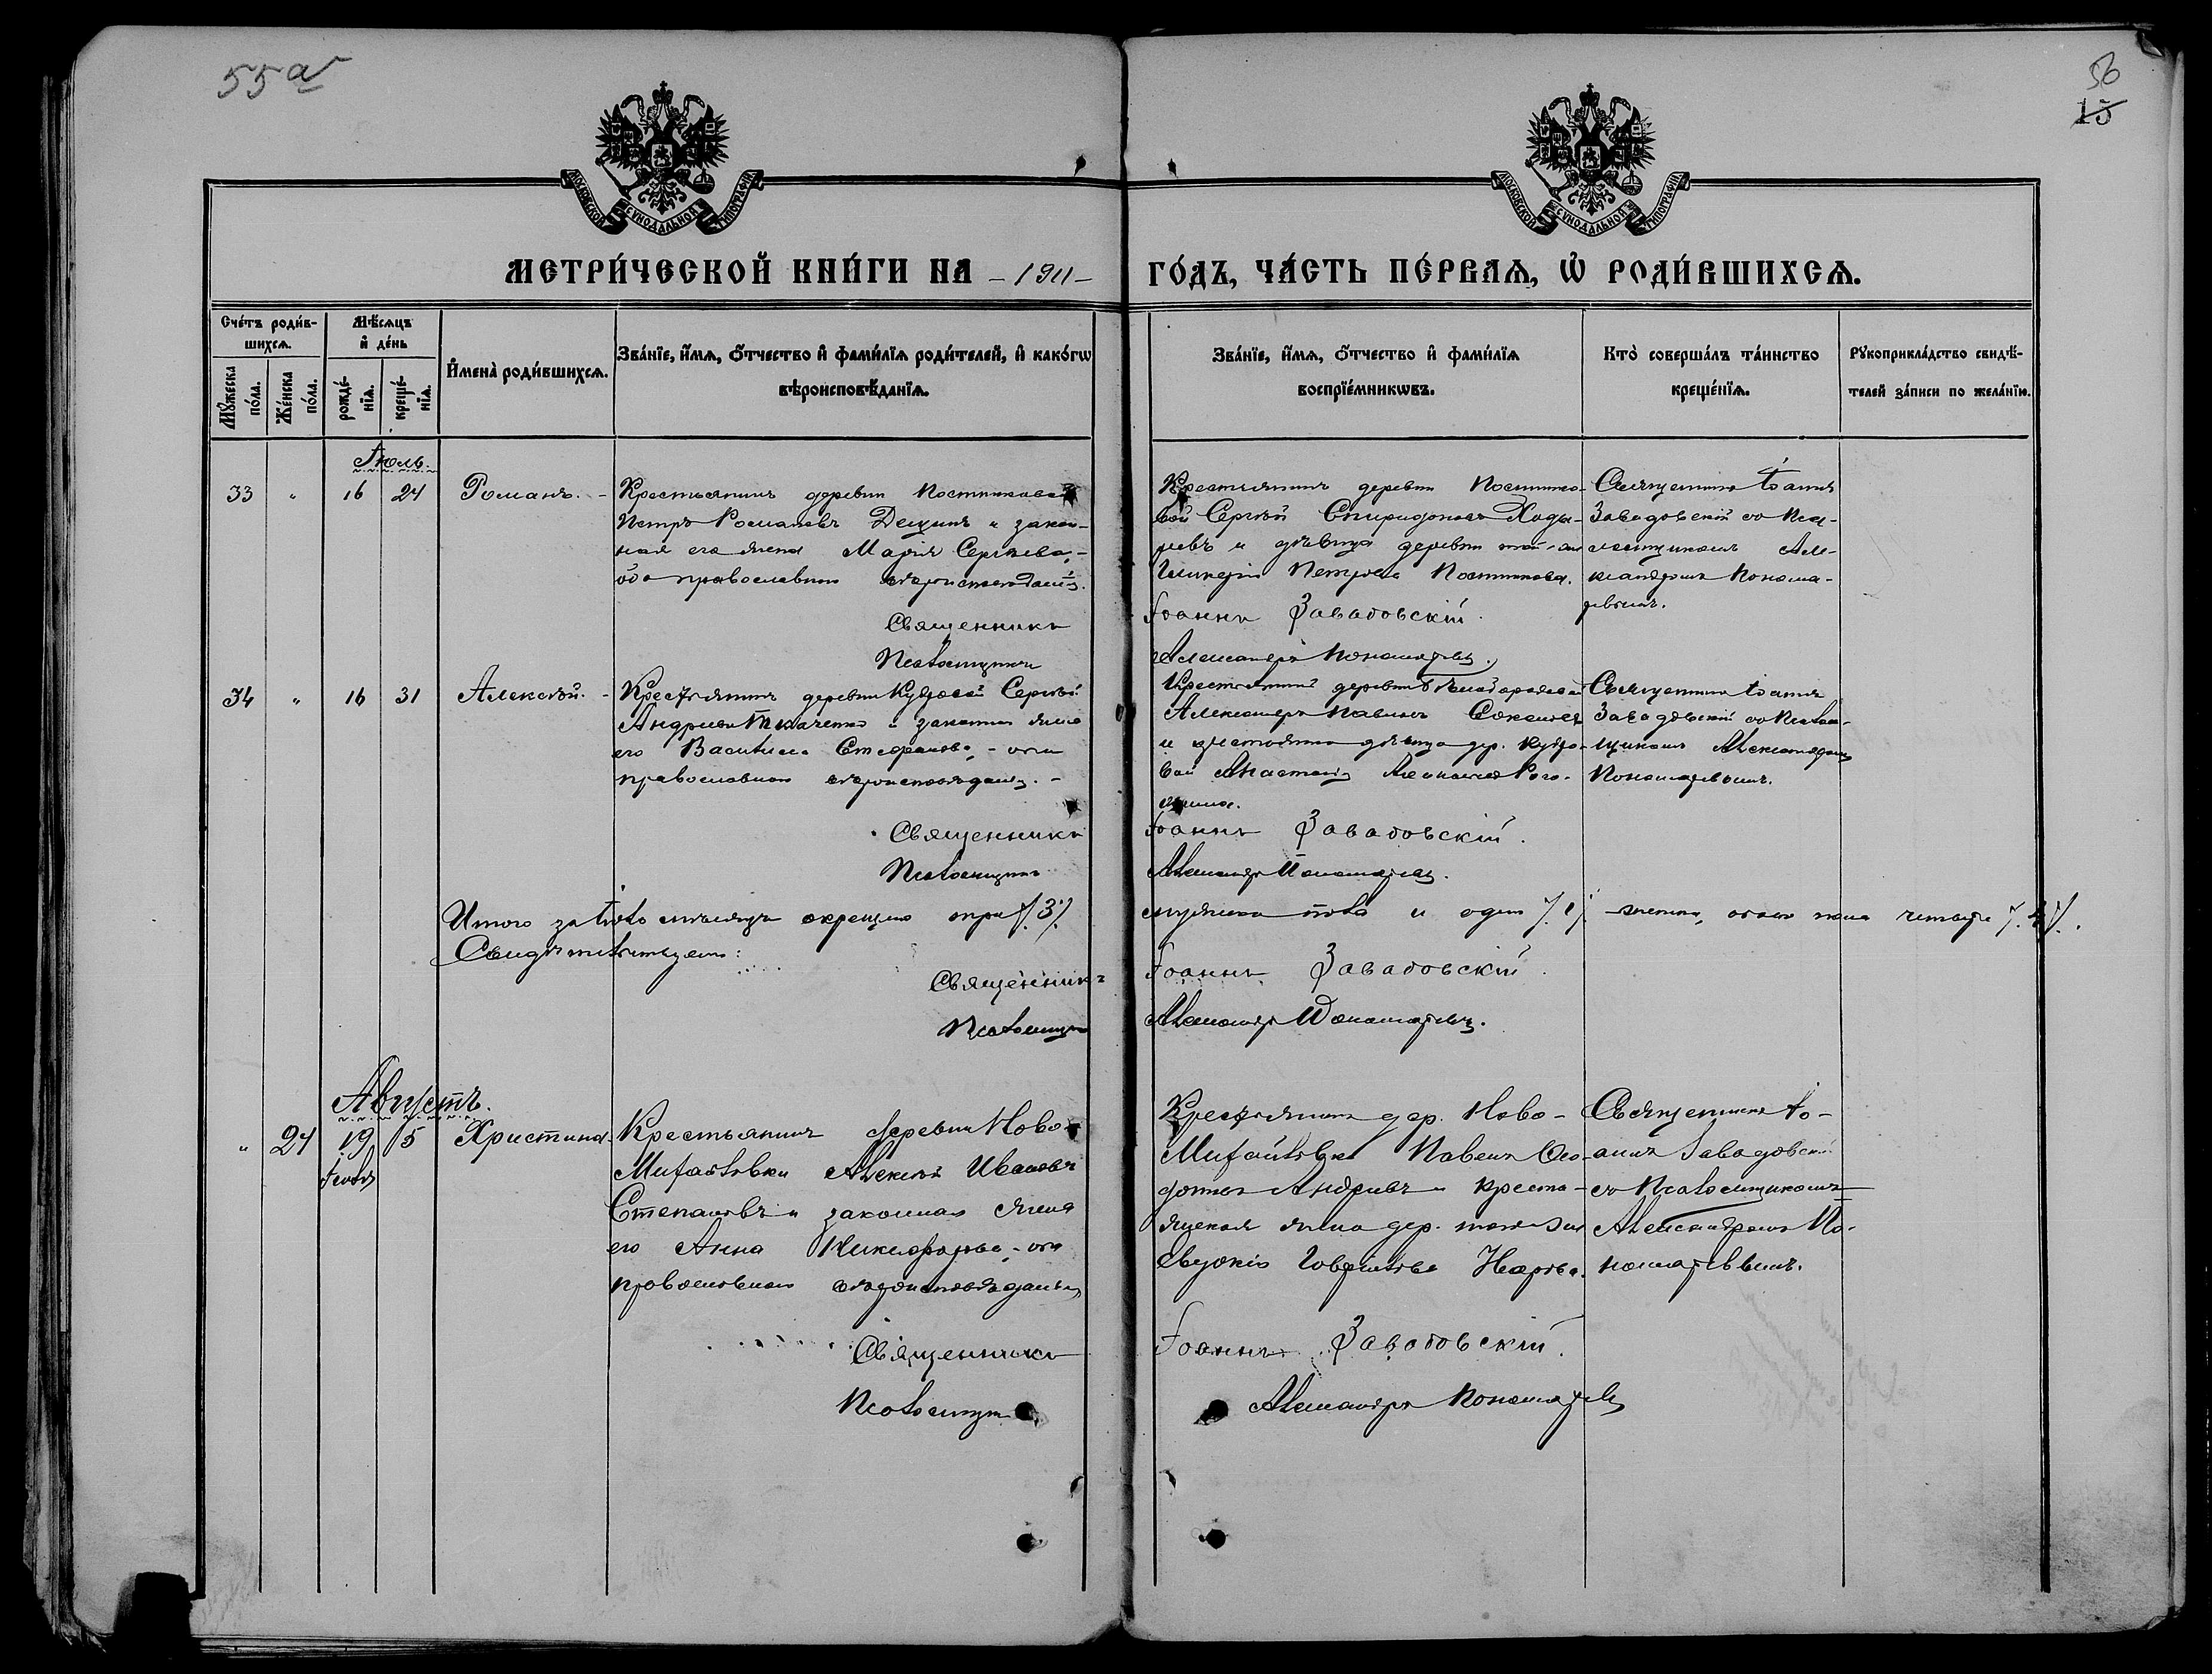 55а
56
15
МОСКОВСКОЙ СѴНОДАЛЬНОЙ ТИПОГРАФІИ
МОСКОВСКОЙ СѴНОДАЛЬНОЙ ТИПОГРАФІИ
МЕТРИ́ЧЕСКОЙ КНИ́ГИ НА -1911-
ГО́ДЪ, ЧА́СТЬ ПЕ́РВАѦ, Ѡ҆ РОДИ́ВШИХСѦ.
Сче́тъ роди́в-
шихсѧ.
Мѣ́сѧцъ
и҆ де́нь
Мꙋ́жеска по́ла.
Же́нска по́ла.
рожде́-
нїѧ.
креще́-
нїѧ.
И҆мена̀ роди́вшихсѧ.
Зва́нїе, и҆́мѧ, ѻ҆́тчество и҆ фами́лїѧ роди́телей, и҆ како́гѡ
вѣроисповѣ́данїѧ.
Зва́нїе, и҆́мѧ, ѻ҆́тчество и҆ фами́лїѧ
воспрїе́мникѡвъ.
Кто̀ соверша́лъ та́инство
креще́нїѧ.
Рꙋкоприкла́дство свидѣ́-
телей за́писи по жела́нїю.
Іюль.
33 " 16 24 Романъ. -
Крестьянинъ деревни Постниковой
Петръ Романовъ Дешинъ и закон-
ная его жена Марія Сергѣева,-
оба православнаго вѣроисповѣданія.
Крестьянинъ деревни Постнико-
вой Сергѣй Спиридоновъ
и дѣвица деревни той-же
Гликерія Петрова Постникова.
Священникъ Іоаннъ
Завадовскій со Пса-
ломщикомъ Але-
ксандромъ Понома-
ревымъ.
Священникъ Іоаннъ Завадовскій.
Псаломщикъ Александръ Пономаревъ.
34 " 16 31 Алексѣй. -
Крестьянинъ деревни Кудровой Сергѣй
Андреевъ Ткаченко и законная жена
его Василиса Стефанова, - оба
православнаго вѣроисповѣданія. -
Крестьянинъ деревни
Александръ Павловъ Соколовъ
и крестьянка дѣвица дер. Кудро-
вой Анастасія
Священникъ Іоаннъ
Завадовскій со Псалом-
щикомъ Александромъ
Пономаревымъ.
Священникъ Іоаннъ Завадовскій.
Псаломщикъ Александръ Пономаревъ.
Итого за Іюль мѣсяцъ окрещено три /.3./. мужеска пола и одинъ /.1./. женска, обоего пола четыре /.4./.
Свидѣтельствуемъ:
Священникъ Іоаннъ Завадовскій.
Псаломщикъ Александръ Пономаревъ.
Августъ.
" 24 19 5 Христина.
Іюля
Крестьянинъ деревни Ново-
Михайловки Алексѣй Ивановъ
Степановъ и законная жена
его Анна Никифорова, - оба
православнаго вѣроисповѣданія
Крестьянинъ дер. Ново-
Михайловки Павелъ Ѳео-
дотовъ Андреевъ и кресть-
янская жена дер. той-же
Евдокія Гаврилова
Священникъ Іо-
аннъ Завадовскій
со Псаломщикомъ
Александромъ По-
номаревымъ.
Священникъ Іоаннъ Завадовскій.
Псаломщикъ Александръ Пономаревъ